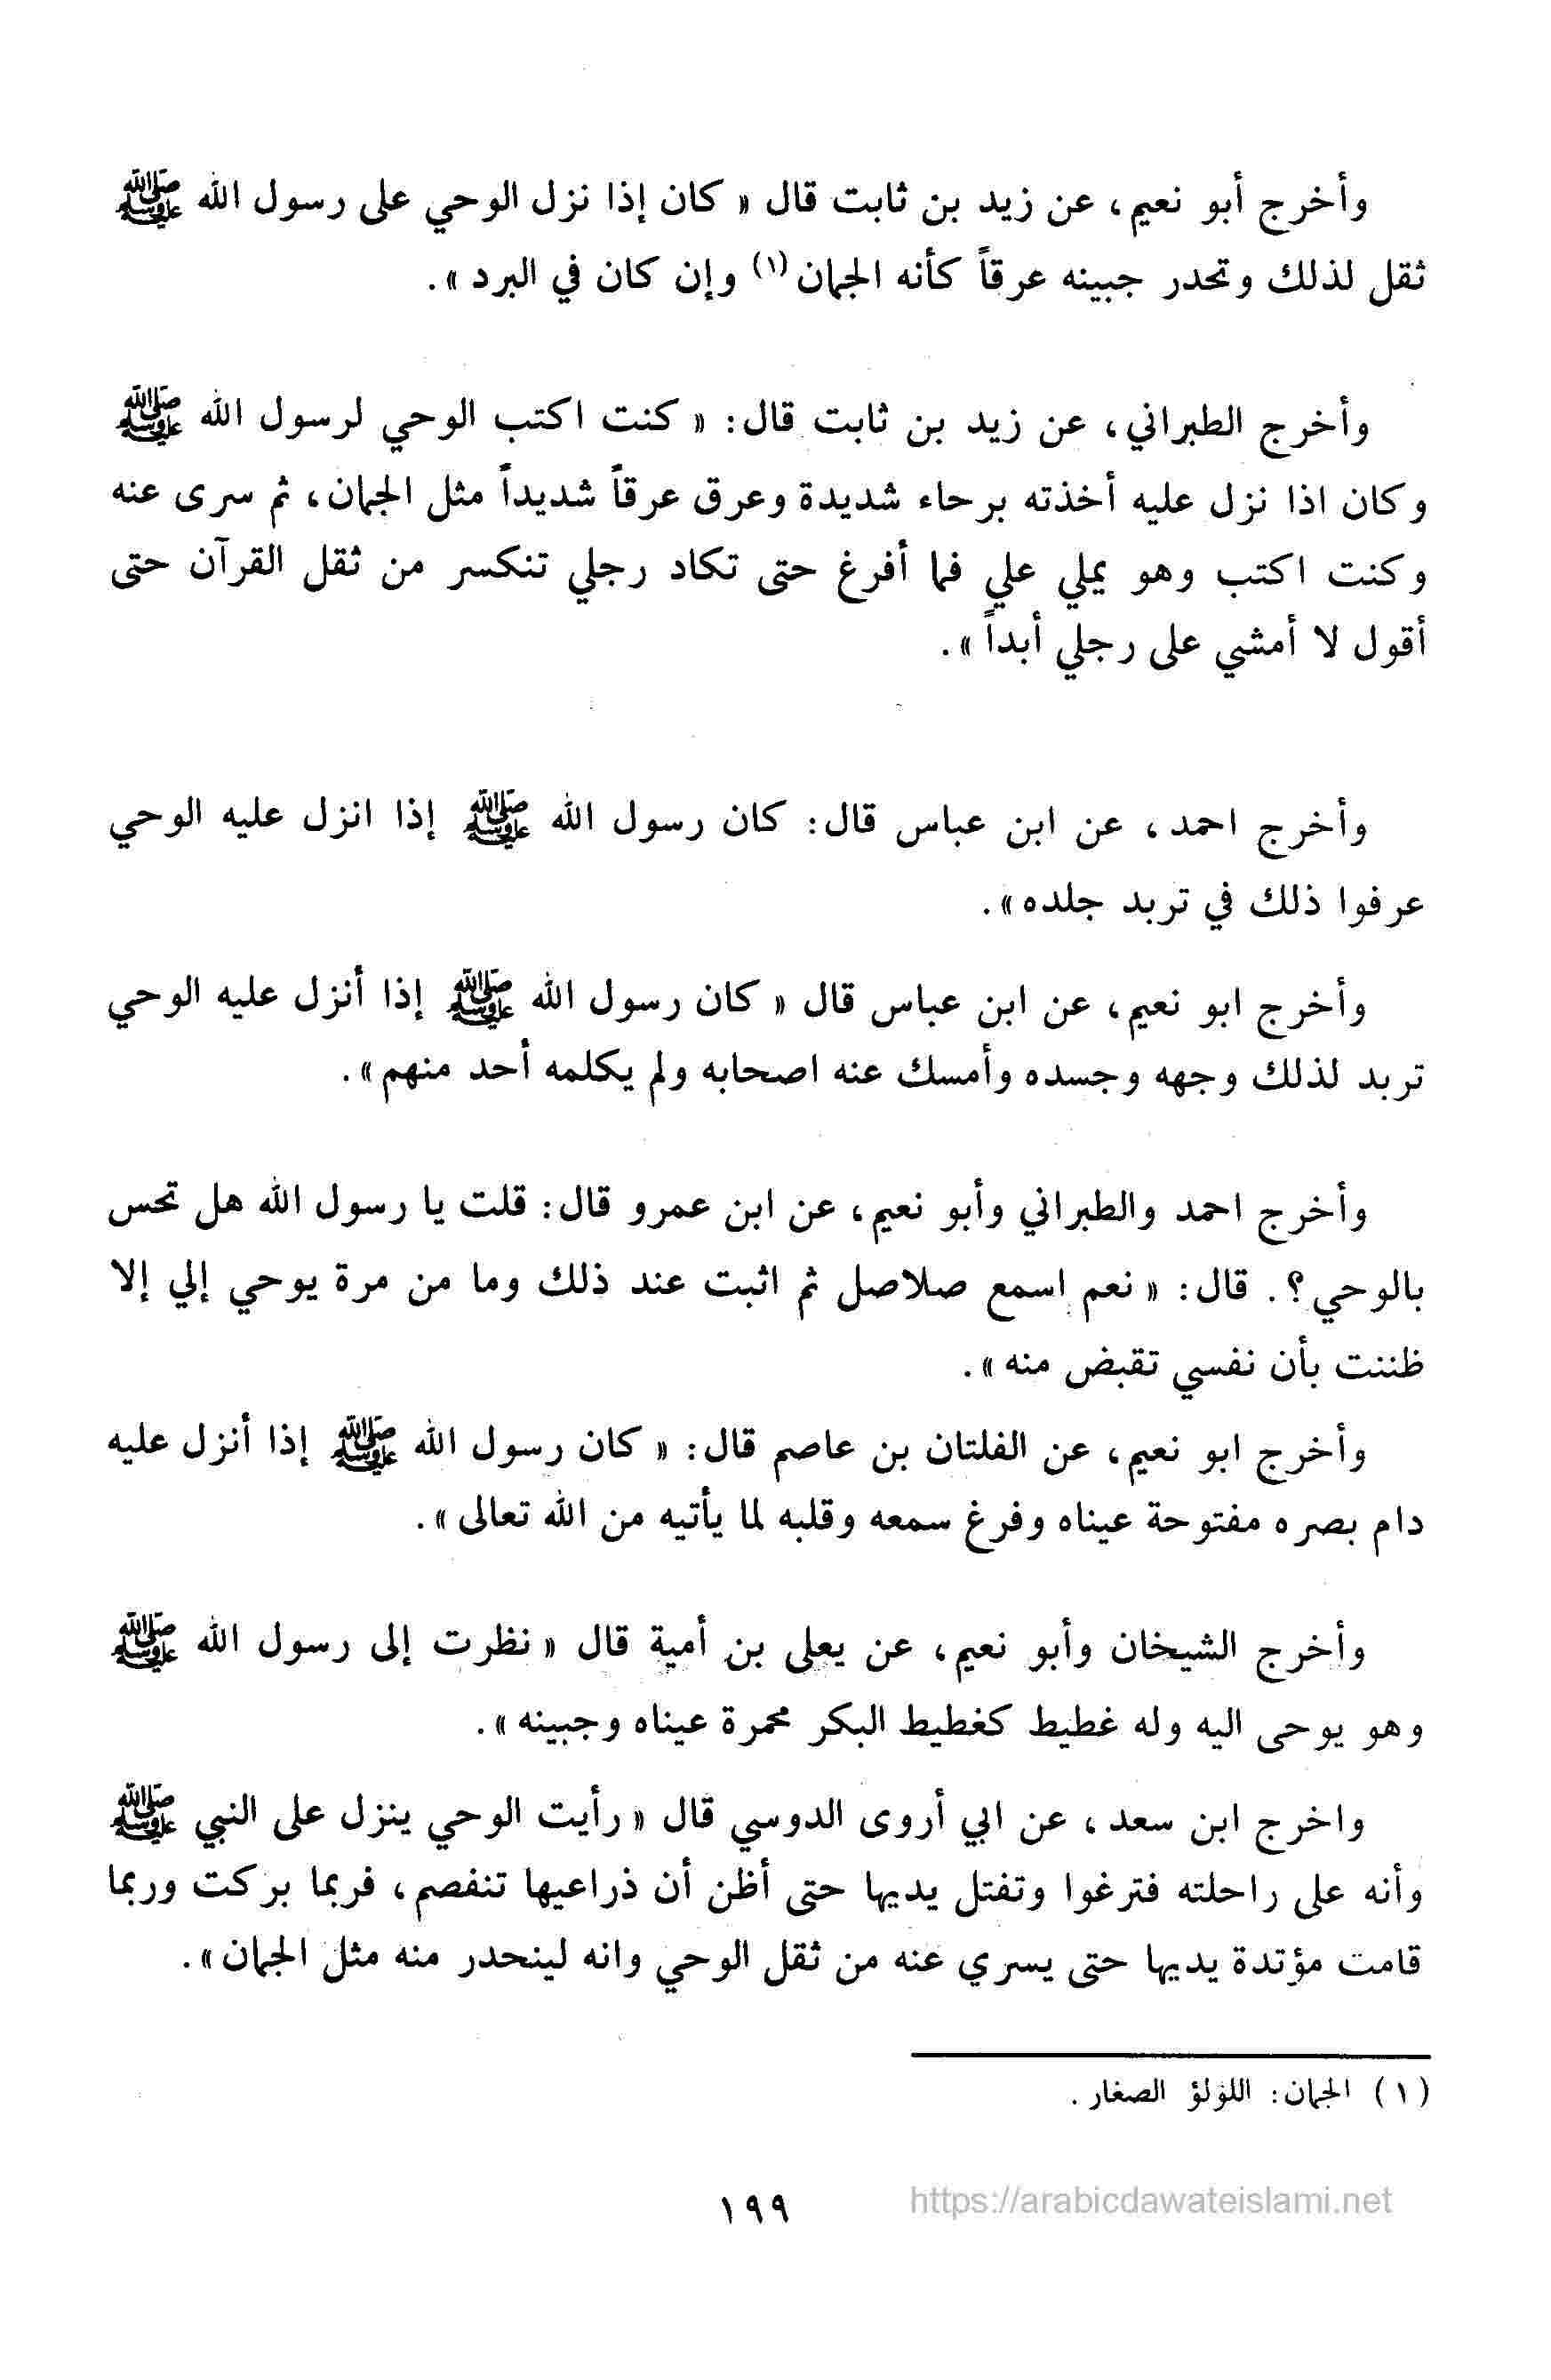 وأخرج أبو نعيم، عن زيد بن ثابت قال « كان إذا نزل الوحي على رسول الله ﷺ
ثقل لذلك وتحدر جبينه عرقاً كأنه الجمان(١) وإن كان في البرد ».
وأخرج الطبراني، عن زيد بن ثابت قال: « كنت اكتب الوحي لرسول الله ﷺ
وكان اذا نزل عليه أخذته برحاء شديدة وعرق عرقاً شديداً مثل الجمان، ثم سرى عنه
وكنت اكتب وهو يملي علي فما أفرغ حتى تكاد رجلي تنكسر من ثقل القرآن حتى
أقول لا أمشي على رجلي أبداً ».
وأخرج احمد، عن ابن عباس قال: كان رسول الله ﷺ إذا انزل عليه الوحي
عرفوا ذلك في تربد جلده».
وأخرج ابو نعيم، عن ابن عباس قال « كان رسول الله ﷺ إذا أنزل عليه الوحي
تربد لذلك وجهه وجسده وأمسك عنه اصحابه ولم يكلمه أحد منهم».
وأخرج احمد والطبراني وأبو نعيم، عن ابن عمرو قال: قلت يا رسول الله هل تحس
بالوحي؟. قال: « نعم اسمع صلاصل ثم اثبت عند ذلك وما من مرة يوحي إلي إلا
ظننت بأن نفسي تقبض منه ».
وأخرج ابو نعيم، عن الفلتان بن عاصم قال: « كان رسول الله ﷺ إذا أنزل عليه
دام بصره مفتوحة عيناه وفرغ سمعه وقلبه لما يأتيه من الله تعالى ».
وأخرج الشيخان وأبو نعيم، عن يعلى بن أمية قال « نظرت إلى رسول الله ﷺ
وهو يوحى اليه وله غطيط كغطيط البكر محمرة عيناه وجبينه ».
واخرج ابن سعد، عن ابي أروى الدوسي قال « رأيت الوحي ينزل على النبي ﷺ
وأنه على راحلته فترغوا وتفتل يديها حتى أظن أن ذراعيها تنفصم، فربما بركت وربما
قامت مؤتدة يديها حتى يسري عنه من ثقل الوحي وانه لينحدر منه مثل الجمان».
(١) الجمان: اللؤلؤ الصغار.
١٩٩
https://arabicdawateislami.net